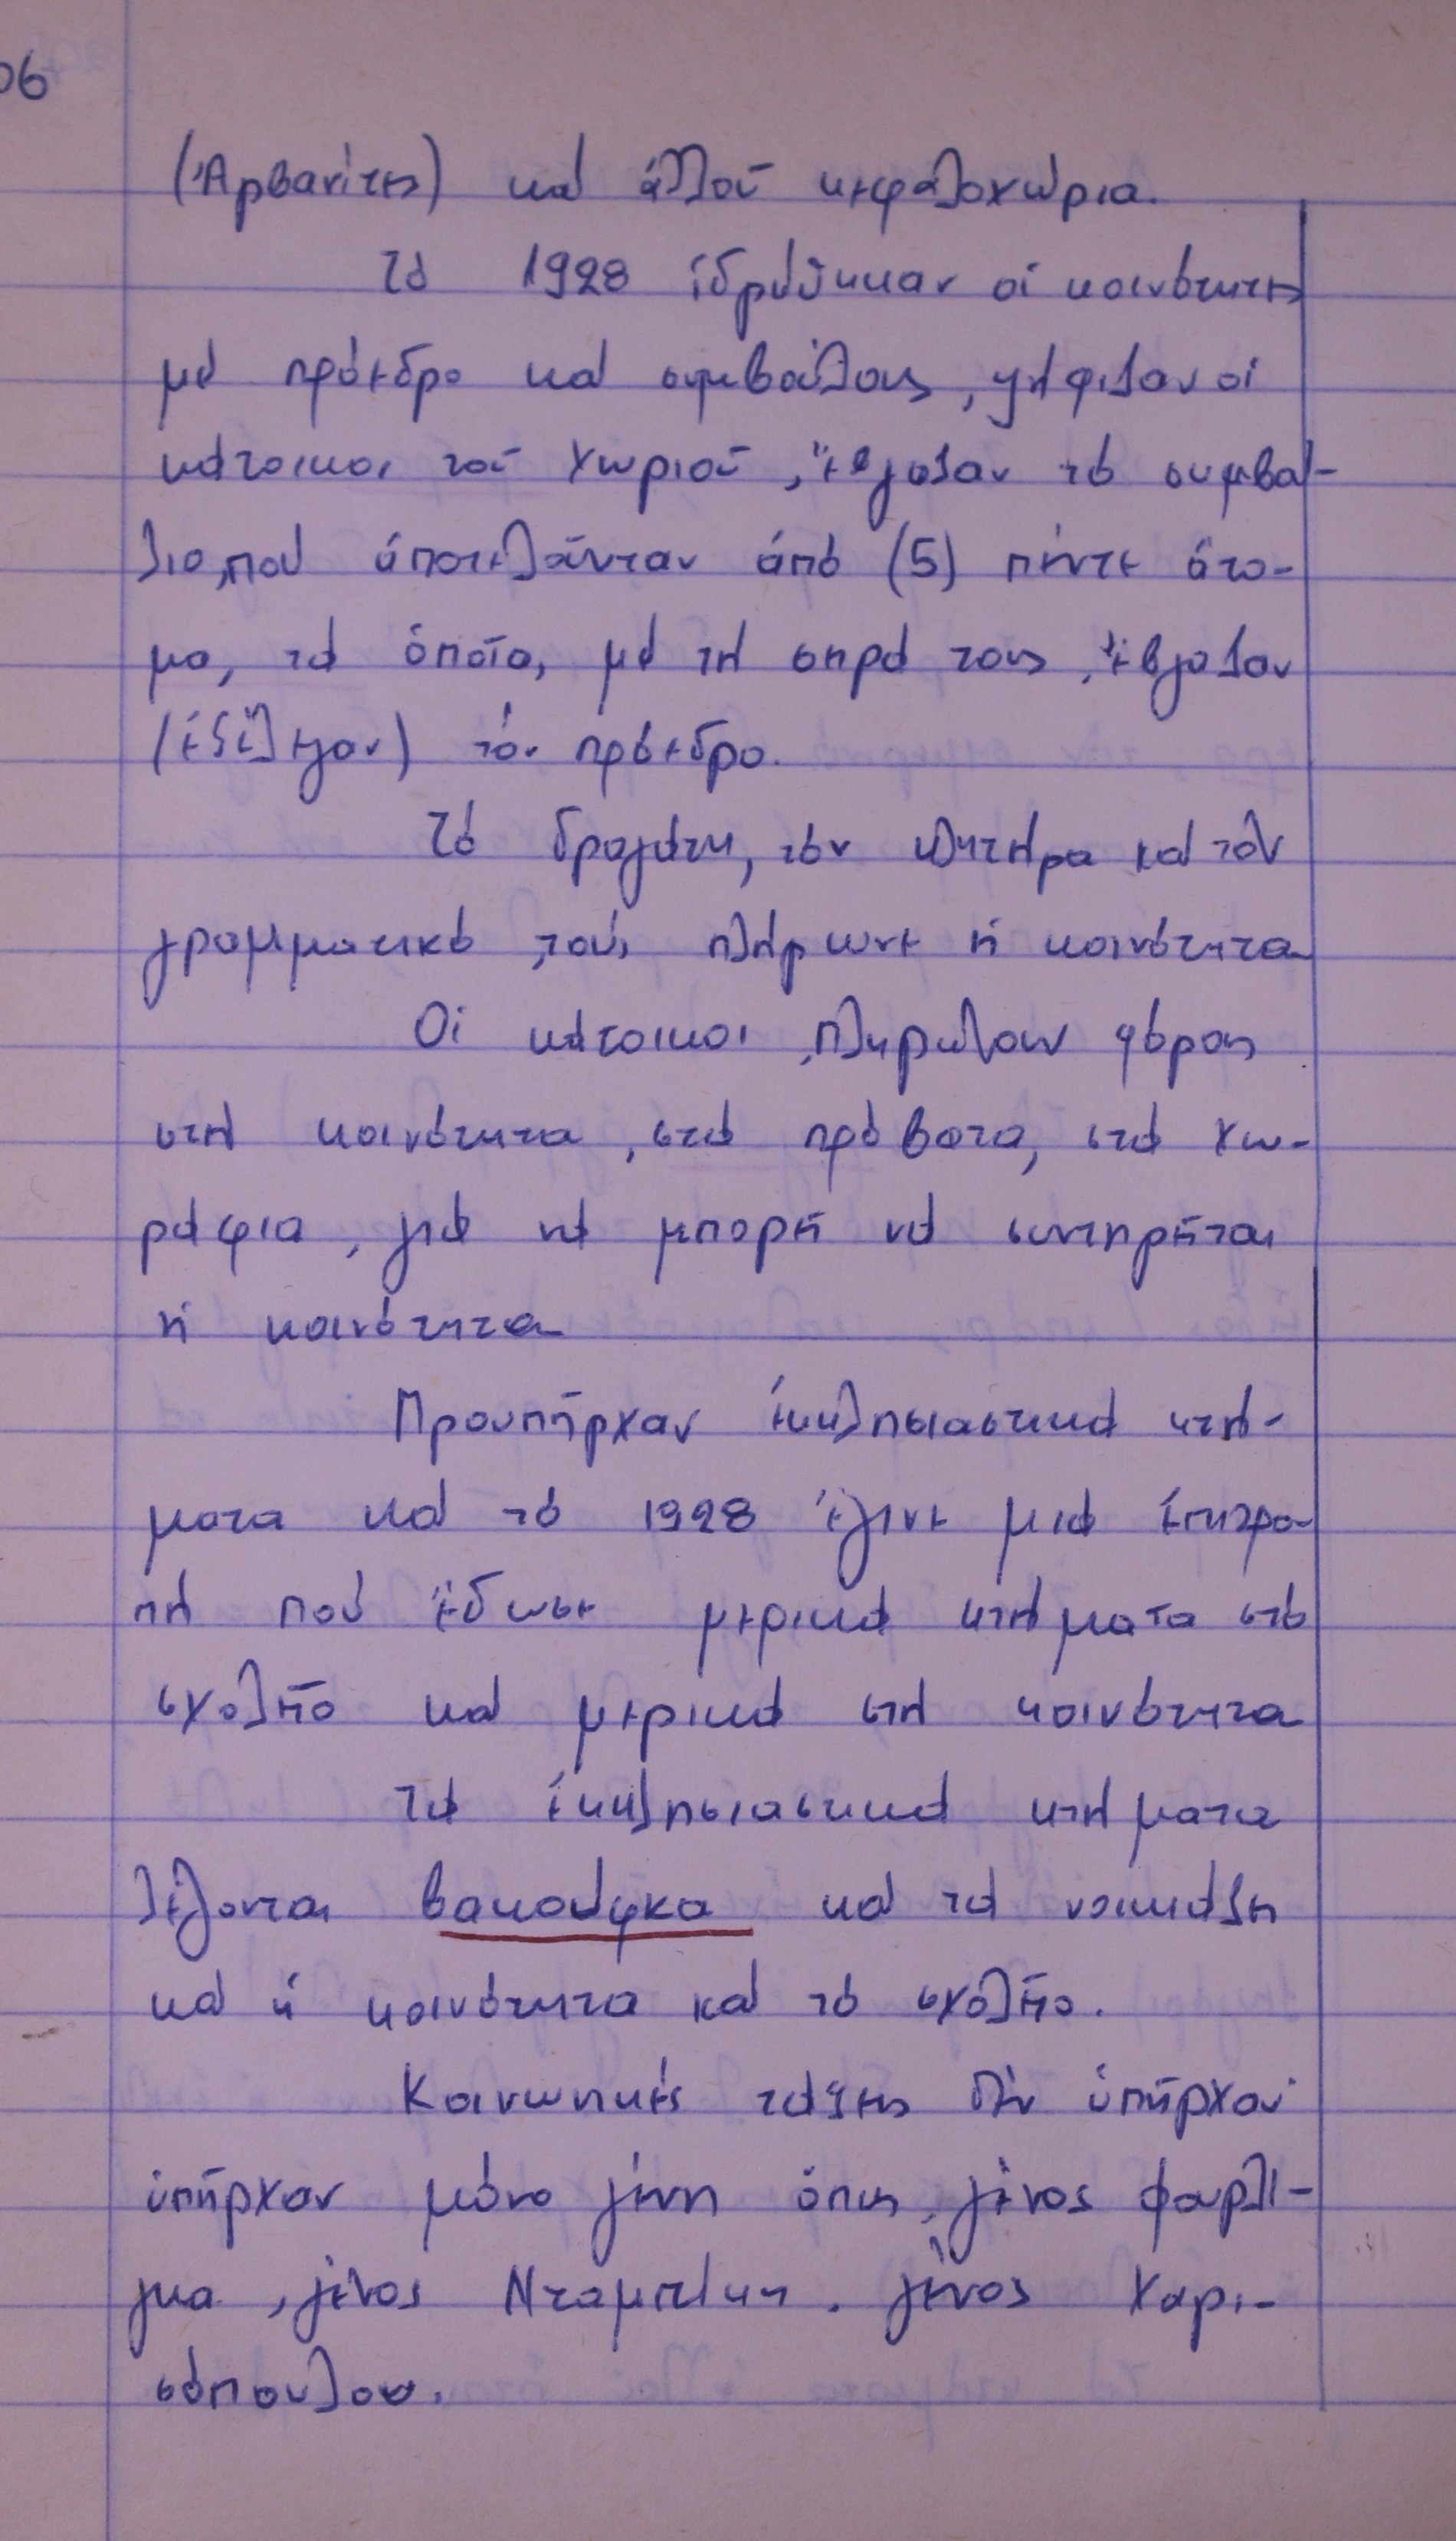 06
(Ἀρβανίτες) καὶ ἀλλοῦ κεφαλοχώρια.
Τὸ 1928 ἱδρύθηκαν οἱ κοινότητες
μὲ πρόεδρο καὶ συμβούλους, ψήφιζαν οἱ
κάτοικοι τοῦ χωριοῦ, ἔβγαζαν τὸ συμβού-
λιο, ποὺ ἀποτελοῦνταν ἀπὸ (5) πέντε ἄτο-
μα, τὰ ὁποῖα, μὲ τὴ σειρά τους, ἔβγαζαν
(ἐξέλεγαν) τὸν πρόεδρο.
Τὸ δραγάτη, τὸν κλητήρα καὶ τὸν
γραμματικό, τοὺς πλήρωνε ἡ κοινότητα
Οἱ κάτοικοι, πλήρωναν φόρους
στὴ κοινότητα, στὰ πρόβατα, στὰ χω-
ράφια, γιὰ νὰ μπορεῖ νὰ συντηρεῖται
ἡ κοινότητα
Προυπῆρχαν ἐκκλησιαστικὰ κτή-
ματα καὶ τὸ 1928 ἔγινε μιὰ ἐπιτρο-
πὴ ποὺ ἔδωσε μερικὰ κτήματα στὸ
σχολεῖο καὶ μερικὰ στὴ κοινότητα
Τὰ ἐκκλησιαστικὰ κτήματα
λέγονται βακούφκα καὶ τὰ νοικιάζει
καὶ ἡ κοινότητα καὶ τὸ σχολεῖο.
Κοινωνικὲς τάξεις δὲν ὑπῆρχαν
ὑπῆρχαν μόνο γένη ὅπως, γένος Φουρλί-
γκα, γένος Νταμπίκη. γένος Χαρι-
σόπουλου.